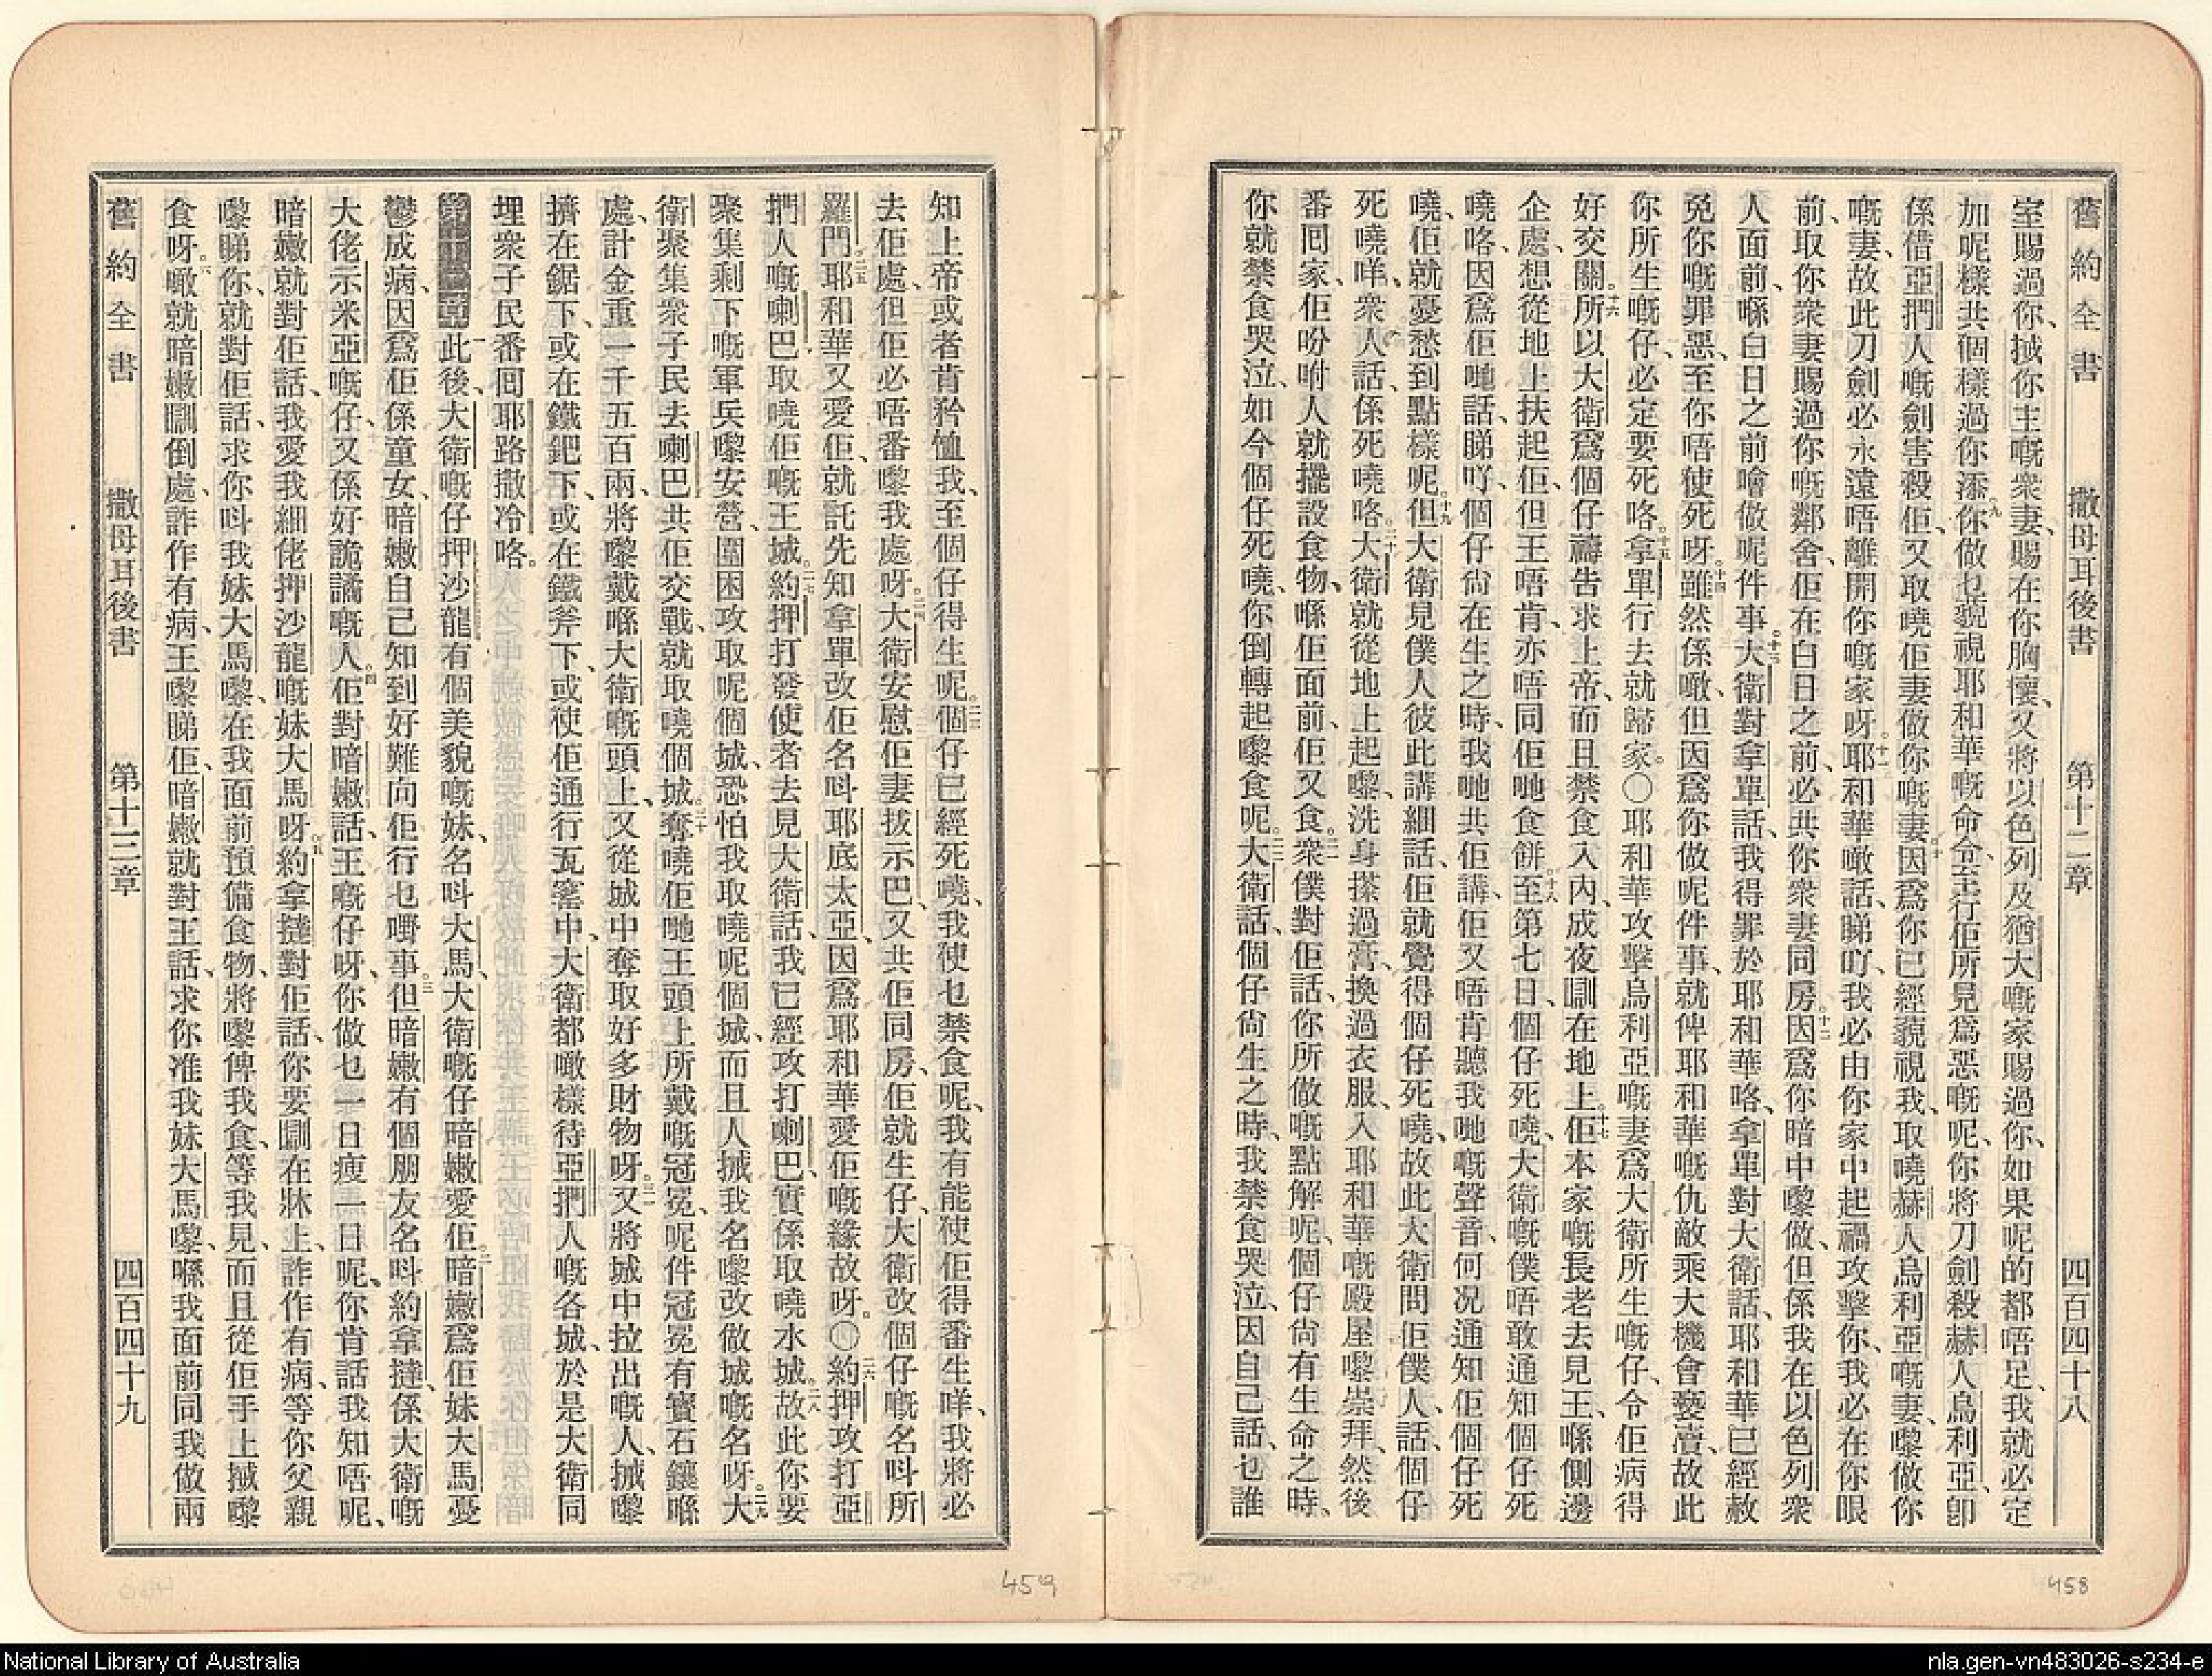 舊約全書 撒母耳後書 第十二章 四百四十八
室賜過你、掝你主嘅衆妻、賜在你胸懷、又將以色列及猶大嘅家賜過你、如果呢的都唔足、我就必定
加呢樣共個樣過你添。九你做乜藐視耶和華嘅命令、至行佢所見爲惡嘅呢、你將刀劍殺赫人烏利亞、卽
係借亞捫人嘅劍害殺佢、又取嘵佢妻做你嘅妻。十因爲你已經藐視我、取嘵赫人烏利亞嘅妻、嚟做你
嘅妻、故此刀劍必永遠唔離開你嘅家呀。十一耶和華噉話、睇吖、我必由你家中起禍攻擊你、我必在你眼
前、取你衆妻賜過你嘅鄰舍、佢在白日之前、必共你衆妻同房。十二因爲你暗中嚟做、但係我在以色列衆
人面前、喺白日之前噲做呢件事。十三大衛對拿單話、我得罪於耶和華咯、拿單對大衛話、耶和華已經赦
免你嘅罪惡、至你唔使死呀。十四雖然係噉、但因爲你做呢件事、就俾耶和華嘅仇敵乘大機會褻凟、故此
你所生嘅仔、必定要死咯。十五拿單行去就歸家。〇耶和華攻擊烏利亞嘅妻爲大衛所生嘅仔、令佢病得
好交關。十六所以大衛爲個仔禱告求上帝、而且禁食入內、成夜瞓在地上。十七佢本家嘅長老去見王、喺側邊
企處、想從地上扶起佢、但王唔肯、亦唔同佢哋食餅。十八至第七日、個仔死嘵、大衛嘅僕唔敢通知個仔死
嘵咯、因爲佢哋話、睇吖、個仔尙在生之時、我哋共佢講、佢又唔肯聽我哋嘅聲音、何况通知佢個仔死
嘵、佢就憂愁到點樣呢。十九但大衛見僕人彼此講細話、佢就覺得個仔死嘵、故此大衛問佢僕人、話、個仔
死嘵咩、衆人話、係死嘵咯。二十大衛就從地上起嚟、洗身搽過膏、換過衣服、入耶和華嘅殿屋嚟崇拜、然後
番囘家、佢吩咐人就擺設食物、喺佢面前、佢又食。二一衆僕對佢話、你所做嘅點解呢、個仔尙有生命之時、
你就禁食哭泣、如今個仔死嘵、你倒轉起嚟食呢。二二大衛話、個仔尙生之時、我禁食哭泣、因自己話、乜誰
知上帝或者肯矜恤我、至個仔得生呢。二三個仔已經死嘵、我使乜禁食呢、我有能使佢得番生咩、我將必
去佢處、但佢必唔番嚟我處呀。二四大衛安慰佢妻拔示巴、又共佢同房、佢就生仔、大衛改個仔嘅名呌所
羅門、二五耶和華又愛佢、就託先知拿單改佢名呌耶底太亞、因爲耶和華愛佢嘅緣故呀。〇二六約押攻打亞
捫人嘅喇巴取嘵佢嘅王城。二七約押打發使者去見大衛、話、我已經攻打喇巴、實係取嘵水城。二八故此你要
聚集剩下嘅軍兵嚟安營、圍困攻取呢個城、恐怕我取嘵呢個城、而且人搣我名嚟改做城嘅名呀。二九大
衛聚集衆子民去喇巴共佢交戰、就取嘵個城。三十奪嘵佢哋王頭上所戴嘅冠冕、呢件冠冕有寶石鑲喺
處、計金重一千五百兩、將嚟戴喺大衛嘅頭上、又從城中奪取好多財物呀。三一又將城中拉出嘅人、搣嚟
擠在鋸下、或在鐵鈀下、或在鐵斧下、或使佢通行瓦窰中、大衛都噉樣待亞捫人嘅各城、於是大衛同
埋衆子民番囘耶路撒冷咯。
第十三章一此後、大衛嘅仔押沙龍有個美貌嘅妹、名呌大馬、大衛嘅仔暗嫩愛佢。二暗嫩爲佢妹大馬憂
鬱成病、因爲佢係童女、暗嫩自己知到好難向佢行乜嘢事。三但暗嫩有個朋友名呌約拿撻、係大衛嘅
大佬示米亞嘅仔、又係好詭譎嘅人。四佢對暗嫩話、王嘅仔呀、你做乜一日瘦一日呢、你肯話我知唔呢、
暗嫩就對佢話、我愛我細佬押沙龍嘅妹大馬呀。五約拿撻對佢話、你要瞓在牀上、詐作有病、等你父親
嚟睇你、就對佢話、求你呌我妹大馬嚟、在我面前預備食物、將嚟俾我食、等我見、而且從佢手上搣嚟
食呀。六噉就暗嫩瞓倒處、詐作有病、王嚟睇佢、暗嫩就對王話、求你准我妹大馬嚟、喺我面前同我做兩
舊約全書 撒母耳後書 第十三章 四百四十九
458
459
National Library of Australia
nla.gen-vn483026-s234-e